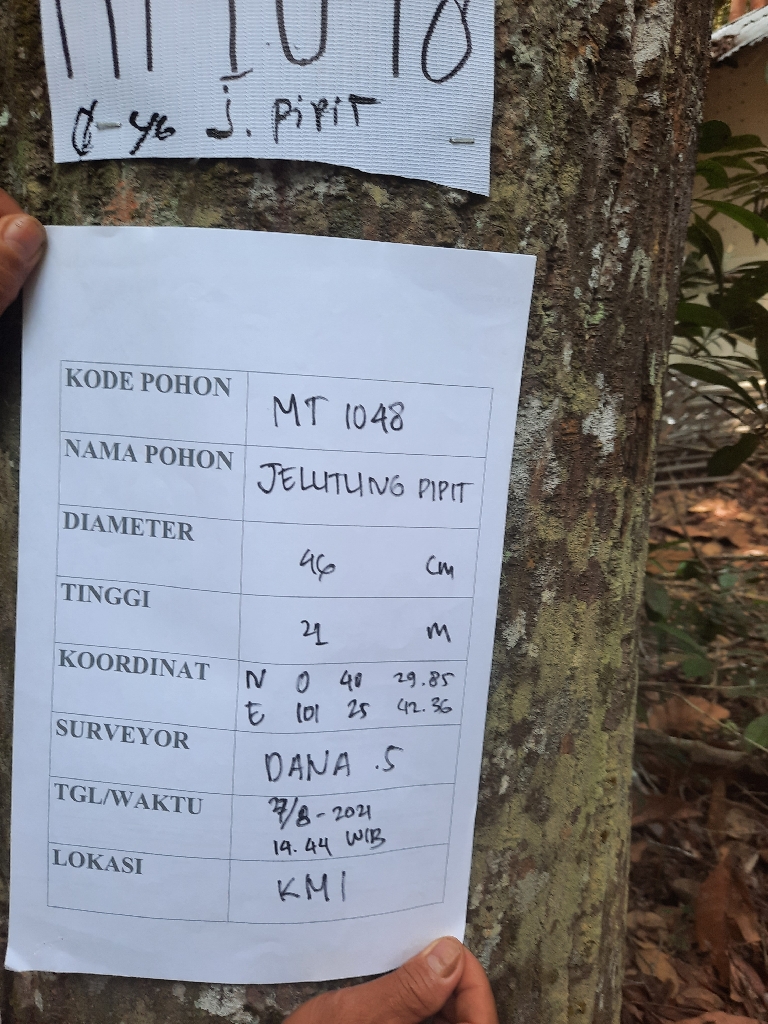 MT 1048
Ø-46 J. PIPIT
KODE POHON MT 1048
NAMA POHON JELUTUNG PIPIT
DIAMETER 46 cm
TINGGI 21 m
KOORDINAT N 0 40 29.85
E 101 25 42.36
SURVEYOR DANA .S
TGL/WAKTU 27/8-2021
14.44 WIB
LOKASI KMI